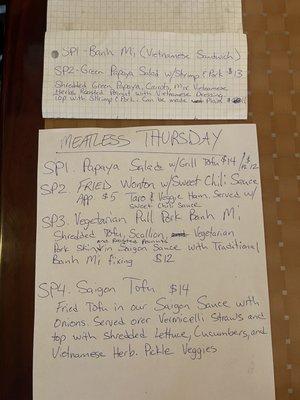 SP1 - Banh Mi (Vietnamese Sandwich)
SP2 - Green Papaya Salad w/ Shrimp & Pork $13
Shredded Green Papaya, Carrots, Mix Vietnamese
Herbs Roasted Peanut with Vietnamese Dressing
top with Shrimp & Pork. Can be made
MEATLESS THURSDAY
SP1. Papaya Salads w/ Grill Tofu $14/
$12
SP2 FRIED Wonton w/ Sweet Chili Sauce
APP $5 Taro & Veggie Ham. Served w/
Sweet Chili Sauce
SP3. Vegetarian Pull Pork Banh Mi
Shredded Tofu, Scallion, Vegetarian
and Roasted Peanuts
Pork Skin in Saigon Sauce with Traditional
Banh Mi fixing $12
SP4. Saigon Tofu $14
Fried Tofu in our Saigon Sauce with
Onions. Served over Vermicelli Straws and
top with Shredded Lettuce, Cusumbers, and
Vietnamese Herb. Pickle Veggies